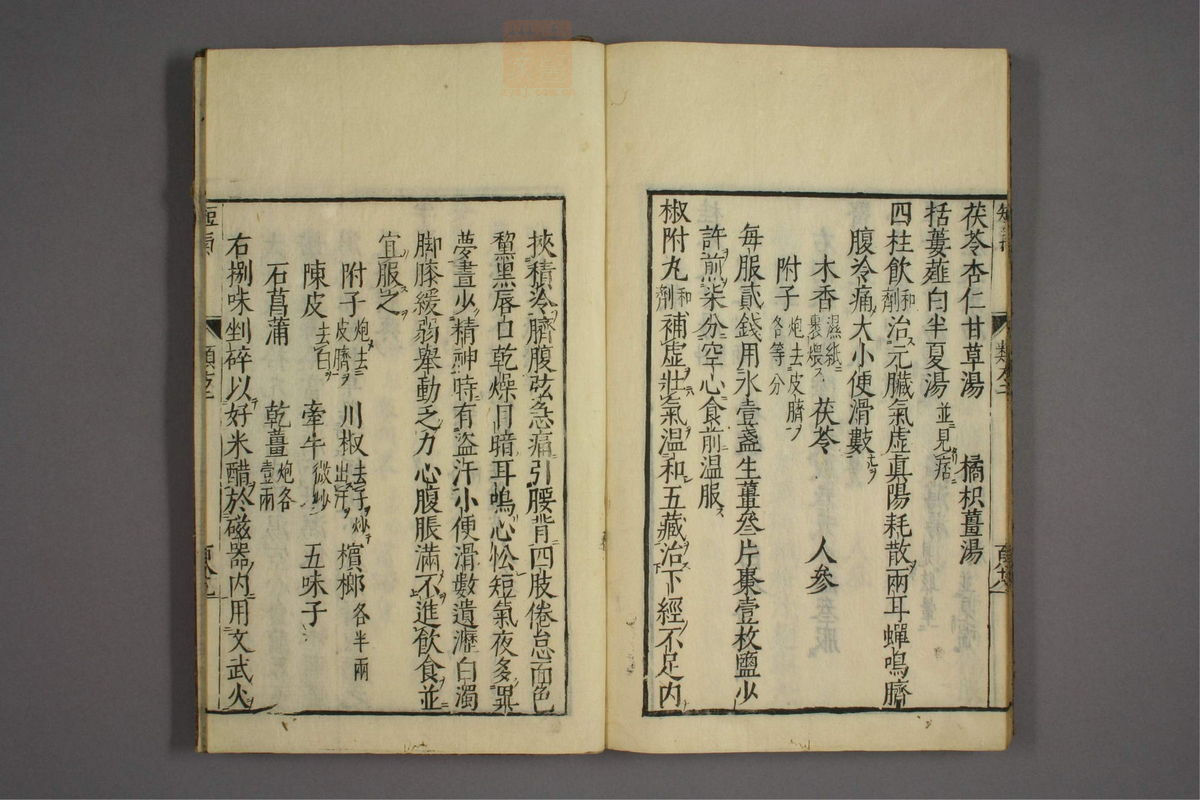 茯苓杏仁甘草湯　橘枳薑湯
括蔞薤白半夏湯 並見痞
四柱飲 和劑 治元臟氣虛眞陽耗散兩耳蟬鳴臍
腹冷痛大小便滑數
木香 濕紙裹煨　茯苓　人參
附子 炮去皮臍各等分
每服貳錢用水壹盞生薑叄片棗壹枚鹽少
許煎柒分空心食前溫服
椒附丸 和劑 補虛壯氣溫和五藏治下經不足內
挾積冷臍腹弦急痛引腰背四肢倦怠面色
黧黑唇口乾燥目暗耳鳴心忪短氣夜多異
夢晝少精神時有盜汗小便滑數遺瀝白濁
脚膝緩弱舉動乏力心腹脹滿不進飲食並
宜服之
附子 炮去皮臍　川椒 去子炒出汗　檳榔 各半兩
陳皮 去白　牽牛 微炒　五味子
石菖蒲　乾薑 炮各壹兩
右捌味剉碎以好米醋於磁器內用文武火